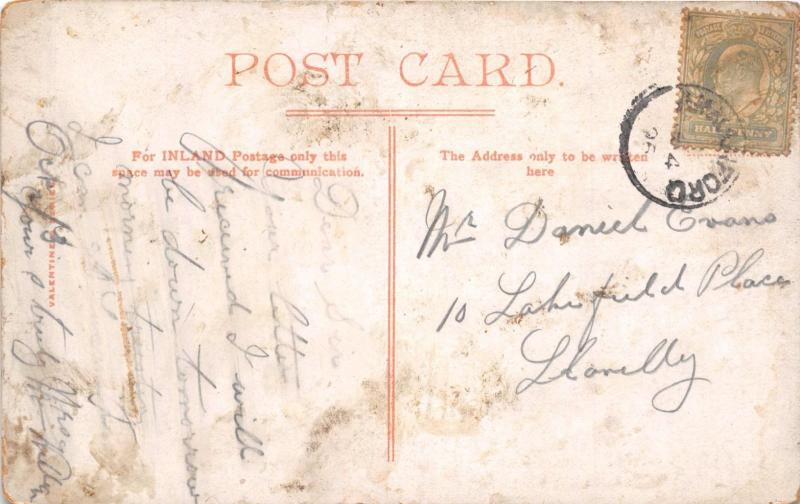 POST CARD.
For INLAND Postage only this
space may be used for communication.
The Address only to be written
here
HALFPENNY
Mr Daniel Evans
10 Lakefield Place
Llanelly
Dear Sir
Your letter
received I will
be down tomorrow
morning
I can
Yours truly
VALENTINE